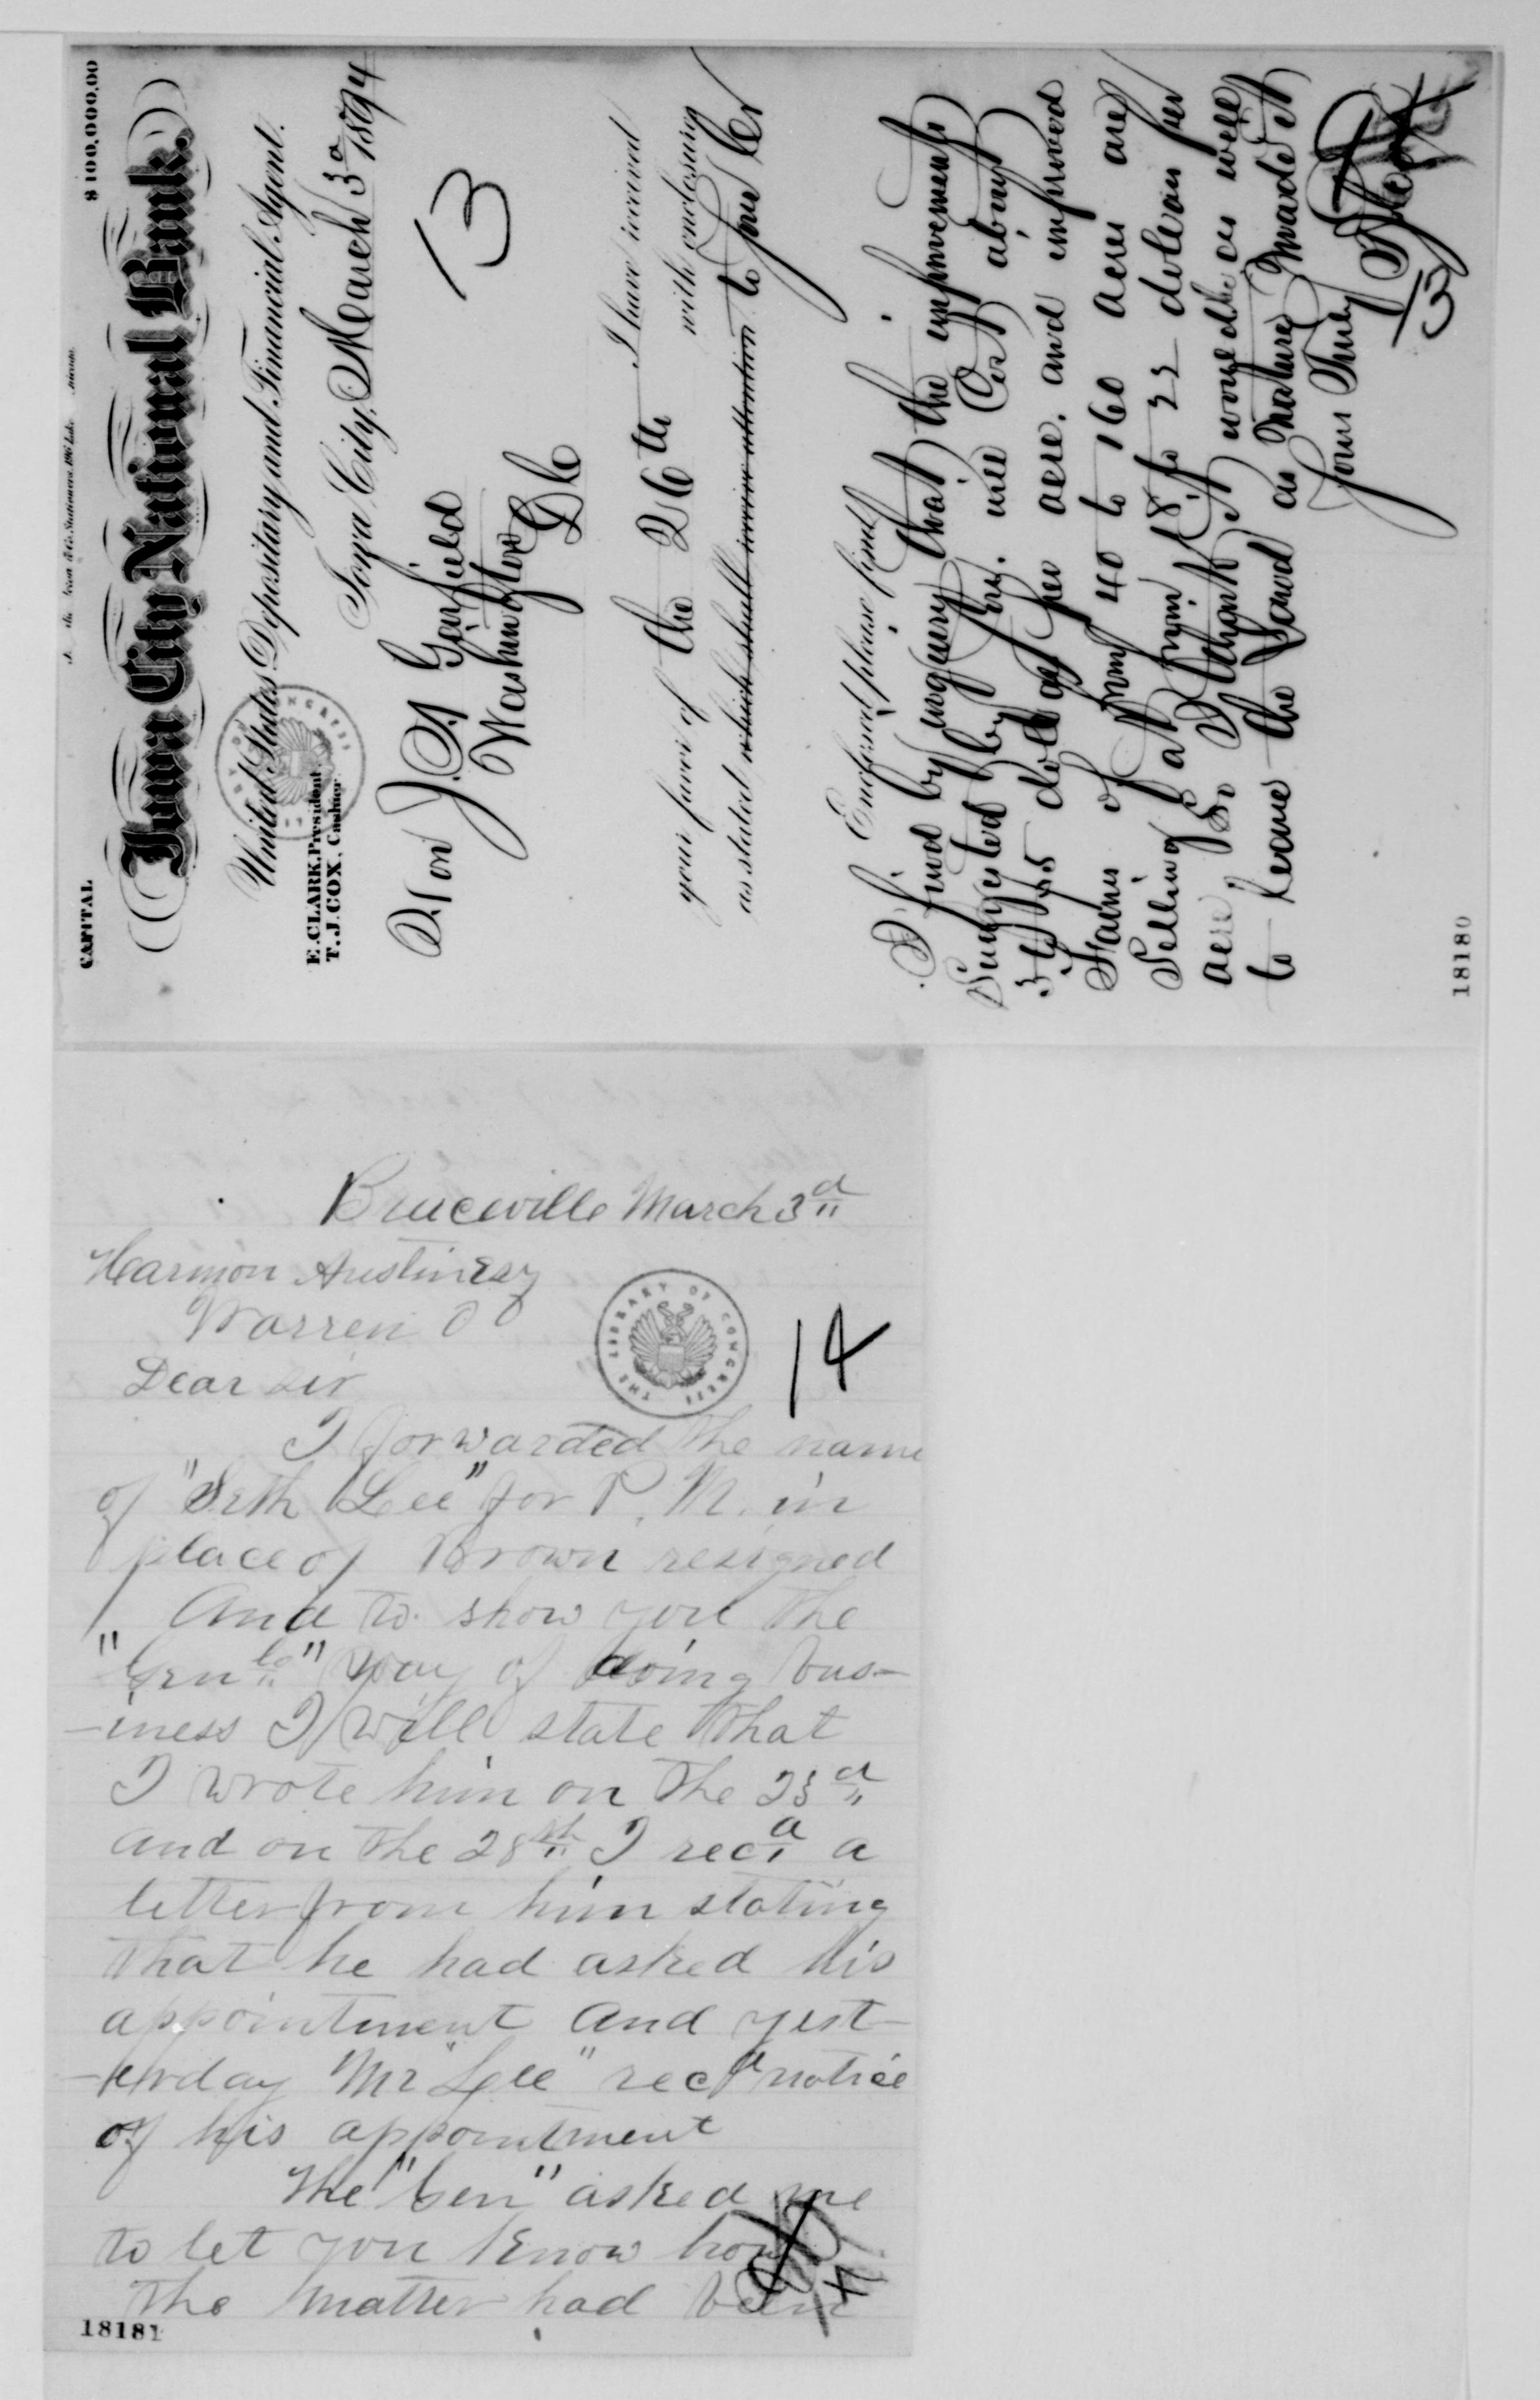 CAPITAL $100,000.00
Iowa City National Bank.
United States Depositary and Financial Agent.
E. CLARK, President.
T. J. COX, Cashier.
Iowa City, March 3d 1874
13
Hon J. A Garfield
Washington D C
I have received
your favor of the 26th with enclosures
as stated which shall receive attention to your Cr
Enclosed please find
I find by inquiry that the improvements
Suggested by you. will Cost about
3 to 5 dollars per acre. and improved
Farms of from 40 to 160 acres are
Selling at from 18 to 25 dollars per
acre So I think it would be as well
to leave the Land as Nature Made it
Yours Truly
13
18180
Bruceville March 3d
Harmon Austin Esq
Warren O
THE LIBRARY OF CONGRESS
14
Dear Sir
I forwarded the name
of "Seth Lee" for P. M. in
place of Brown resigned
And to show you the
"Genls" way of doing bus-
-iness I will state that
I wrote him on the 23d
and on the 28th I recd a
letter from him stating
that he had asked his
appointment and yest-
-erday Mr "Lee" recd notice
of his appointment
The "Gen" asked me
to let you know how
the matter had been
14
18181